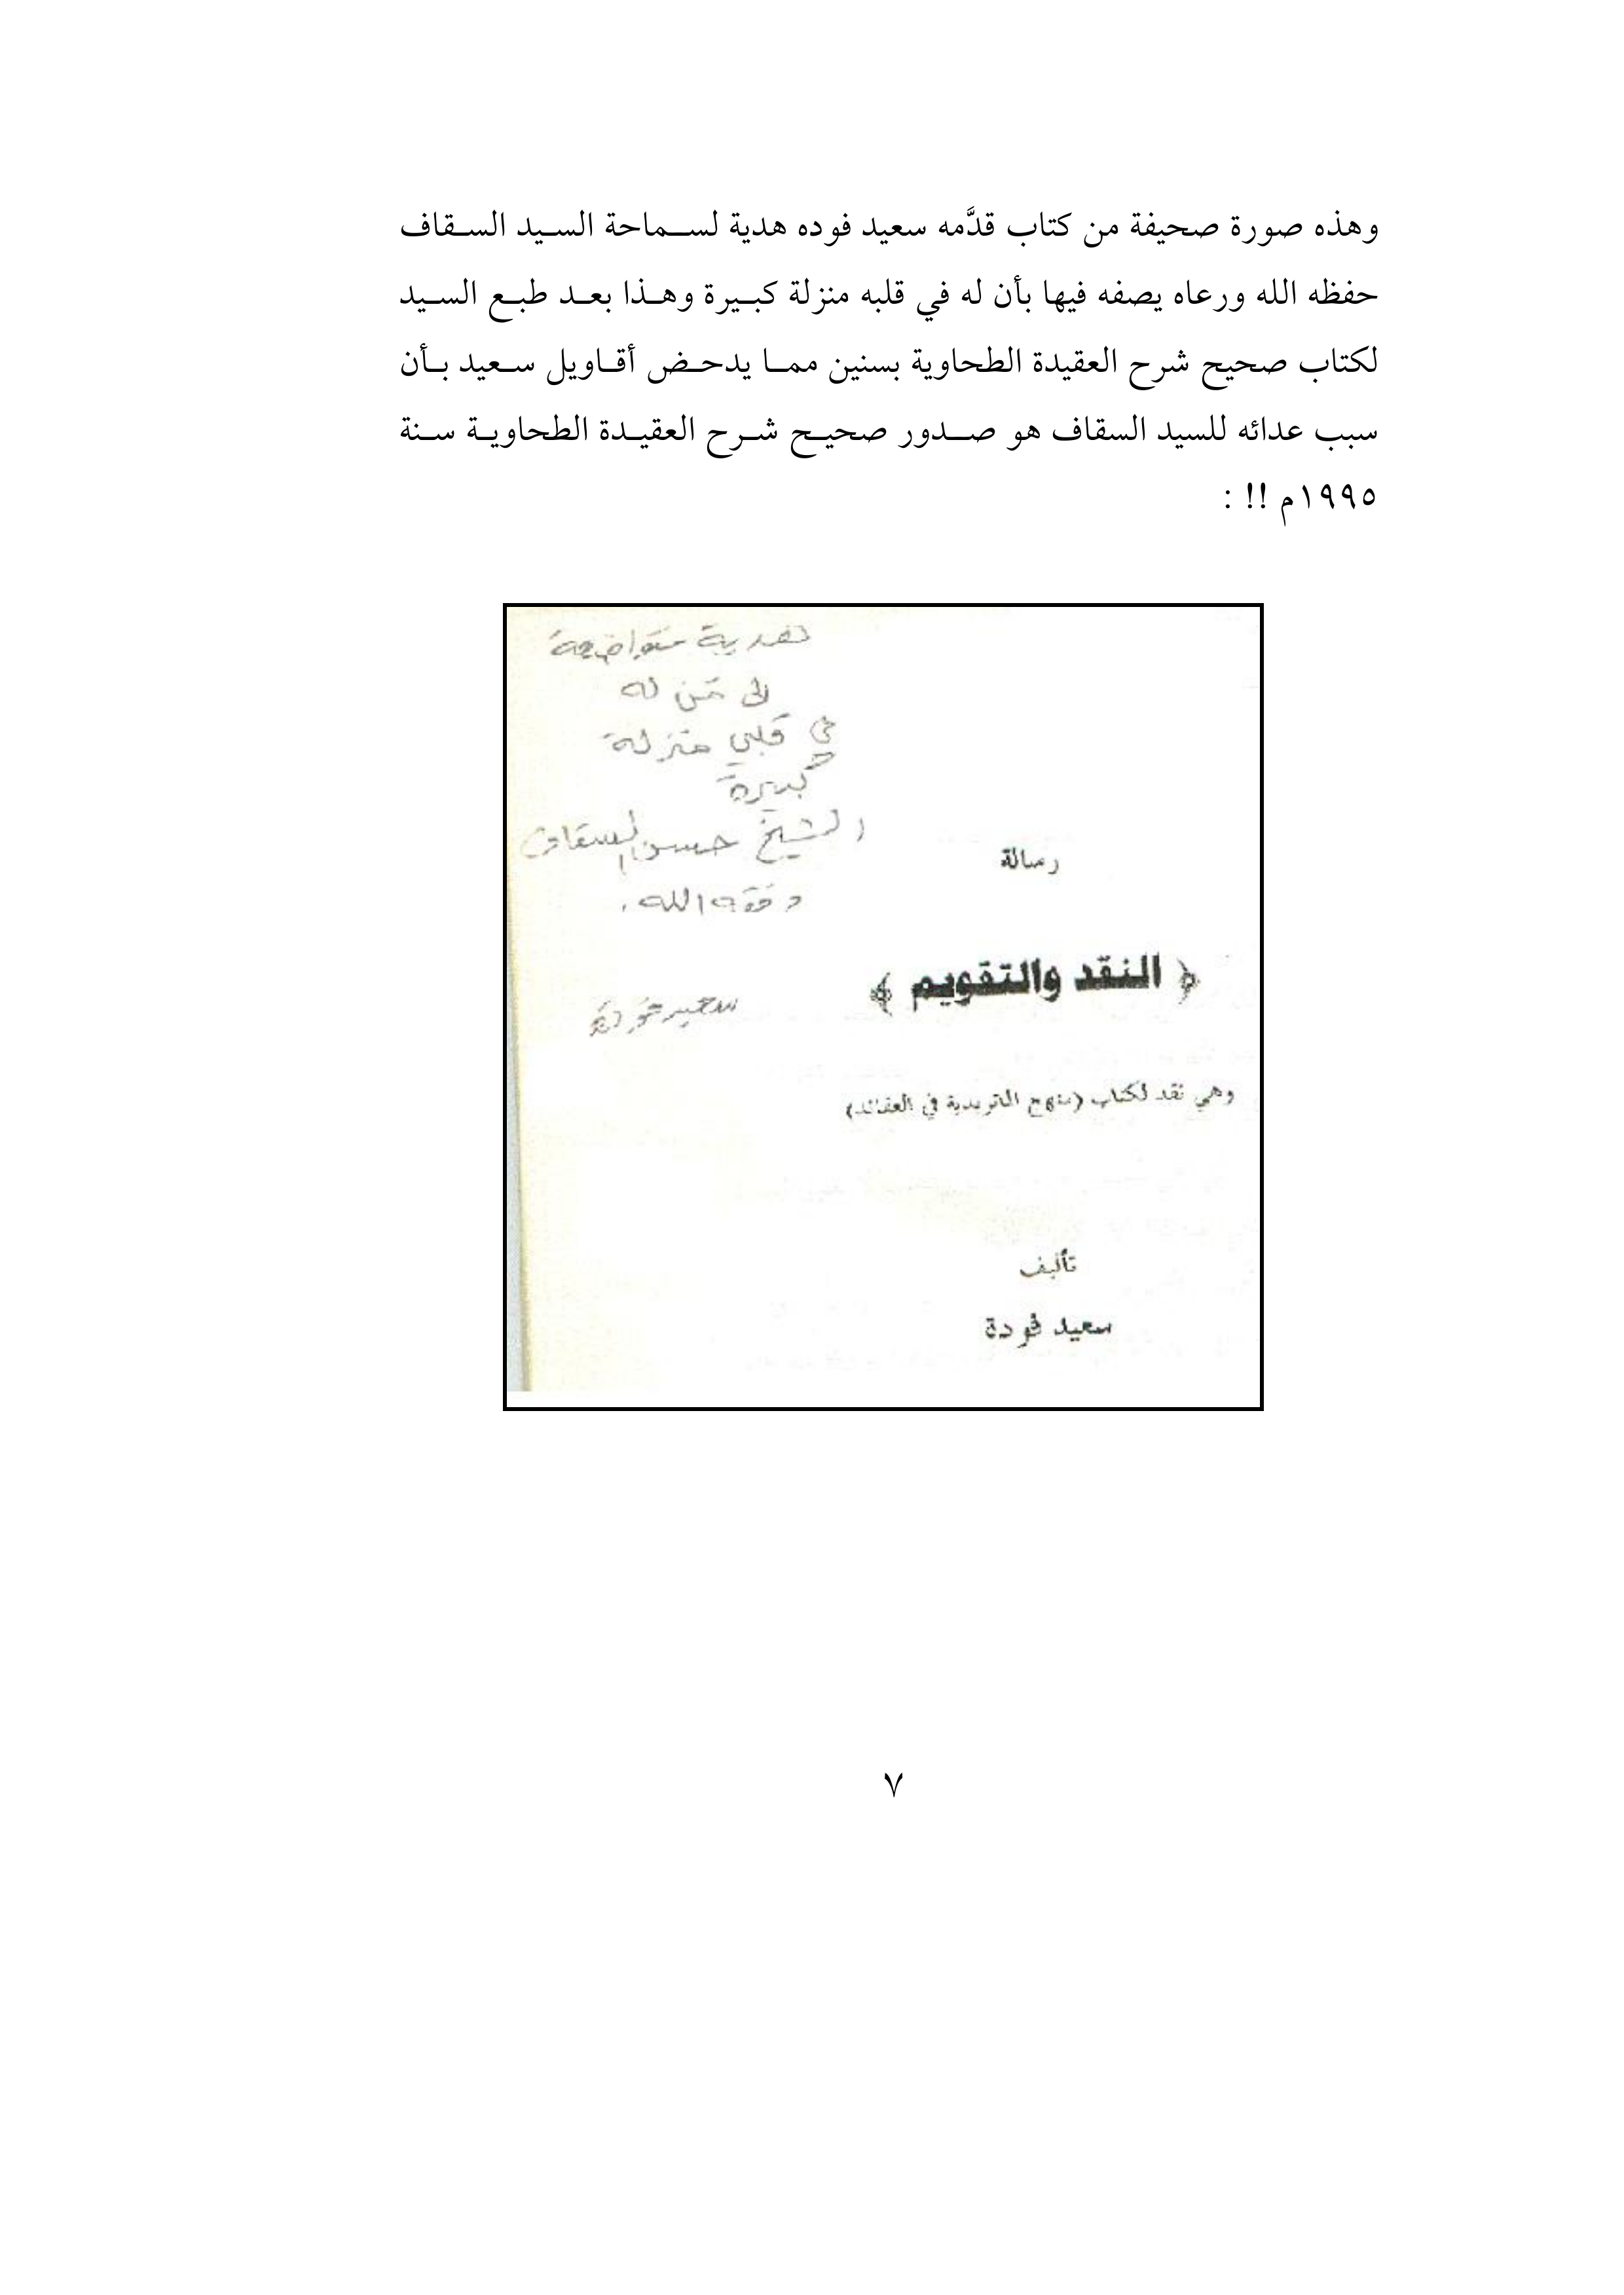 وهذه صورة صحيفة من كتاب قدَّمه سعيد فوده هدية لسماحة السيد السقاف
حفظه الله ورعاه يصفه فيها بأن له في قلبه منزلة كبيرة وهذا بعد طبع السيد
لكتاب صحيح شرح العقيدة الطحاوية بسنين مما يدحض أقاويل سعيد بأن
سبب عدائه للسيد السقاف هو صدور صحيح شرح العقيدة الطحاوية سنة
١٩٩٥م !! :
هدية متواضعة
إلى من له
في قلبي منزلة
كبيرة
الشيخ حسن السقاف
وفقه الله.
سعيد فودة
رسالة
﴿ النقد والتقويم ﴾
وهي نقد لكتاب (منهج الماتريدية في العقائد)
تأليف
سعيد فودة
٧